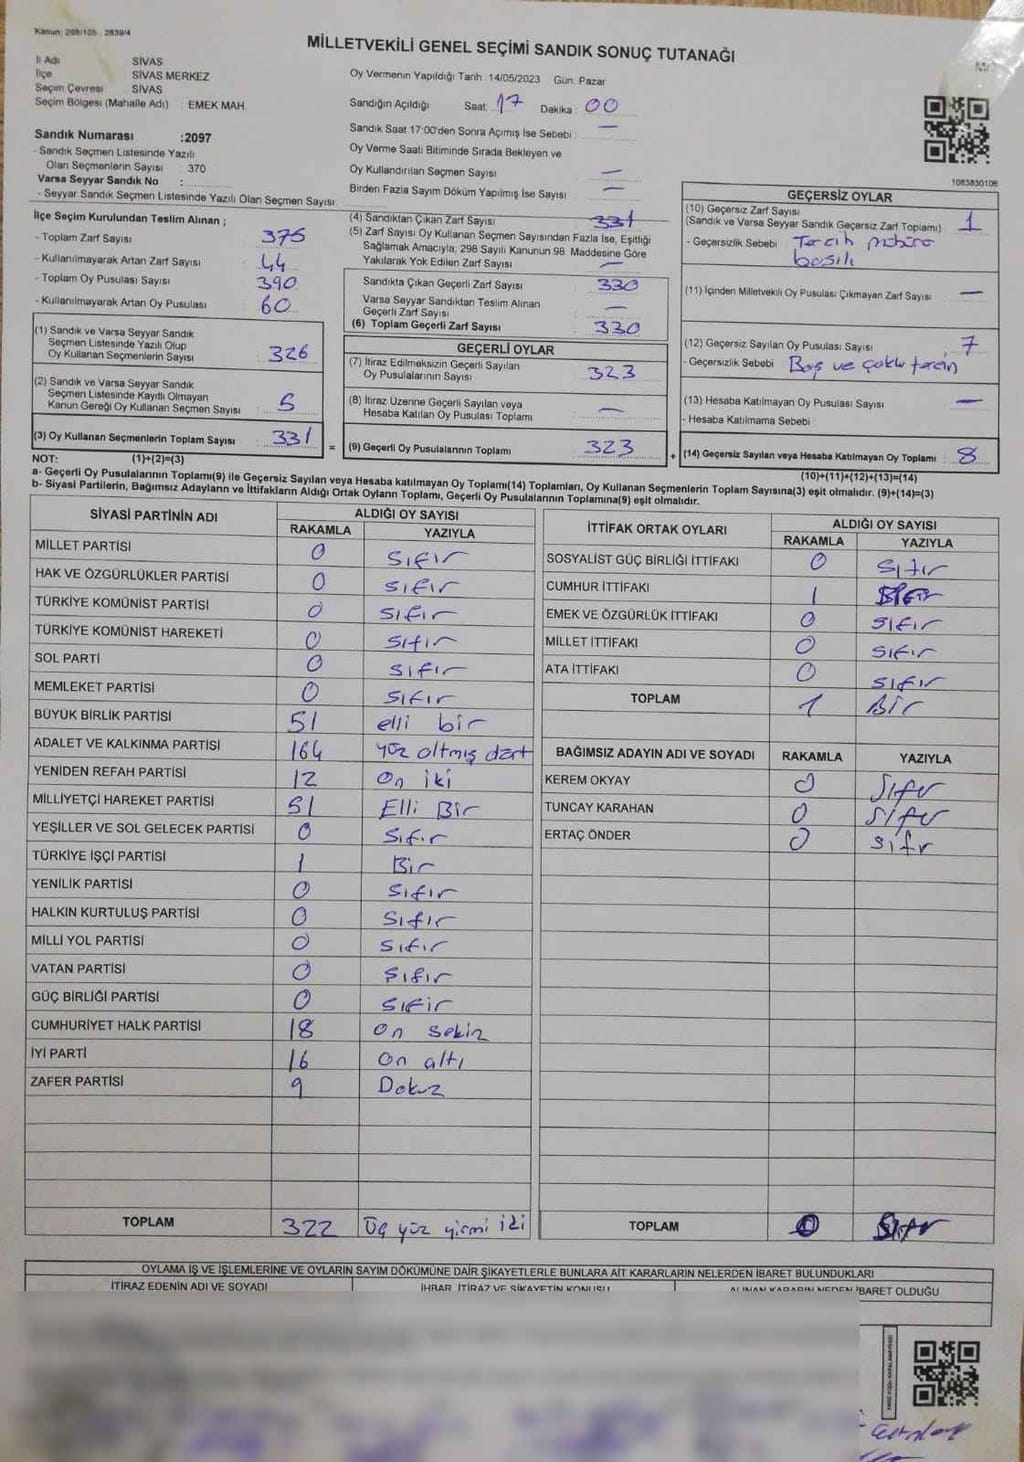 Kanun; 298/105 , 2839/4
MİLLETVEKİLİ GENEL SEÇİMİ SANDIK SONUÇ TUTANAĞI
İl Adı : SİVAS
İlçe : SİVAS MERKEZ
Seçim Çevresi : SİVAS
Seçim Bölgesi (Mahalle Adı) : EMEK MAH.
Oy Vermenin Yapıldığı Tarih :14/05/2023 Gün: Pazar
Sandığın Açıldığı Saat: 17 Dakika : 00
Sandık Saat 17:00'den Sonra Açımış İse Sebebi : —
Oy Verme Saati Bitiminde Sırada Bekleyen ve
Oy Kullandırılan Seçmen Sayısı —
Birden Fazla Sayım Döküm Yapılmış İse Sayısı —
Sandık Numarası :2097
- Sandık Seçmen Listesinde Yazılı
Olan Seçmenlerin Sayısı : 370
Varsa Seyyar Sandık No :
- Seyyar Sandık Seçmen Listesinde Yazılı Olan Seçmen Sayısı
İlçe Seçim Kurulundan Teslim Alınan ;
- Toplam Zarf Sayısı 375
- Kullanılmayarak Artan Zarf Sayısı 44
- Toplam Oy Pusulası Sayısı 390
- Kullanılmayarak Artan Oy Pusulası 60
(1) Sandık ve Varsa Seyyar Sandık
Seçmen Listesinde Yazılı Olup
Oy Kullanan Seçmenlerin Sayısı 326
(2) Sandık ve Varsa Seyyar Sandık
Seçmen Listesinde Kayıtlı Olmayan
Kanun Gereği Oy Kullanan Seçmen Sayısı 5
(3) Oy Kullanan Seçmenlerin Toplam Sayısı 331
(4) Sandıktan Çıkan Zarf Sayısı 331
(5) Zarf Sayısı Oy Kullanan Seçmen Sayısından Fazla İse, Eşitliği
Sağlamak Amacıyla; 298 Sayılı Kanunun 98. Maddesine Göre
Yakılarak Yok Edilen Zarf Sayısı —
Sandıkta Çıkan Geçerli Zarf Sayısı 330
Varsa Seyyar Sandıktan Teslim Alınan
Geçerli Zarf Sayısı —
(6) Toplam Geçerli Zarf Sayısı 330
GEÇERLİ OYLAR
(7) İtiraz Edilmeksizin Geçerli Sayılan
Oy Pusulalarının Sayısı 323
(8) İtiraz Üzerine Geçerli Sayılan veya
Hesaba Katılan Oy Pusulası Toplamı —
= (9) Geçerli Oy Pusulalarının Toplamı 323 +
1083830106
GEÇERSİZ OYLAR
(10) Geçersiz Zarf Sayısı
(Sandık ve Varsa Seyyar Sandık Geçersiz Zarf Toplamı) 1
- Geçersizlik Sebebi : Tercih mührü
basılı
(11) İçinden Milletvekili Oy Pusulası Çıkmayan Zarf Sayısı —
(12) Geçersiz Sayılan Oy Pusulası Sayısı 7
- Geçersizlik Sebebi : Boş ve çoklu tercih
(13) Hesaba Katılmayan Oy Pusulası Sayısı —
- Hesaba Katılmama Sebebi :
(14) Geçersiz Sayılan veya Hesaba Katılmayan Oy Toplamı : 8
NOT: (1)+(2)=(3)
(10)+(11)+(12)+(13)=(14)
a- Geçerli Oy Pusulalarının Toplamı(9) ile Geçersiz Sayılan veya Hesaba katılmayan Oy Toplamı(14) Toplamları, Oy Kullanan Seçmenlerin Toplam Sayısına(3) eşit olmalıdır. (9)+(14)=(3)
b- Siyasi Partilerin, Bağımsız Adayların ve İttifakların Aldığı Ortak Oyların Toplamı, Geçerli Oy Pusulalarının Toplamına(9) eşit olmalıdır.
SİYASİ PARTİNİN ADI ALDIĞI OY SAYISI
RAKAMLA YAZIYLA
MİLLET PARTİSİ 0 Sıfır
HAK VE ÖZGÜRLÜKLER PARTİSİ 0 Sıfır
TÜRKİYE KOMÜNİST PARTİSİ 0 Sıfır
TÜRKİYE KOMÜNİST HAREKETİ 0 Sıfır
SOL PARTİ 0 Sıfır
MEMLEKET PARTİSİ 0 Sıfır
BÜYÜK BİRLİK PARTİSİ 51 elli bir
ADALET VE KALKINMA PARTİSİ 164 yüz altmış dört
YENİDEN REFAH PARTİSİ 12 On iki
MİLLİYETÇİ HAREKET PARTİSİ 51 Elli Bir
YEŞİLLER VE SOL GELECEK PARTİSİ 0 Sıfır
TÜRKİYE İŞÇİ PARTİSİ 1 Bir
YENİLİK PARTİSİ 0 Sıfır
HALKIN KURTULUŞ PARTİSİ 0 Sıfır
MİLLİ YOL PARTİSİ 0 Sıfır
VATAN PARTİSİ 0 Sıfır
GÜÇ BİRLİĞİ PARTİSİ 0 Sıfır
CUMHURİYET HALK PARTİSİ 18 On sekiz
İYİ PARTİ 16 On altı
ZAFER PARTİSİ 9 Dokuz
TOPLAM 322 Üç yüz yirmi iki
İTTİFAK ORTAK OYLARI ALDIĞI OY SAYISI
RAKAMLA YAZIYLA
SOSYALİST GÜÇ BİRLİĞİ İTTİFAKI 0 Sıfır
CUMHUR İTTİFAKI 1 Bir
EMEK VE ÖZGÜRLÜK İTTİFAKI 0 Sıfır
MİLLET İTTİFAKI 0 Sıfır
ATA İTTİFAKI 0 Sıfır
TOPLAM 1 Bir
BAĞIMSIZ ADAYIN ADI VE SOYADI RAKAMLA YAZIYLA
KEREM OKYAY 0 Sıfır
TUNCAY KARAHAN 0 Sıfır
ERTAÇ ÖNDER 0 Sıfır
TOPLAM 0 Sıfır
OYLAMA İŞ VE İŞLEMLERİNE VE OYLARIN SAYIM DÖKÜMÜNE DAİR ŞİKAYETLERLE BUNLARA AİT KARARLARIN NELERDEN İBARET BULUNDUKLARI
İTİRAZ EDENİN ADI VE SOYADI İHBAR, İTİRAZ VE ŞİKAYETİN KONUSU ALINAN KARARIN NEDEN İBARET OLDUĞU